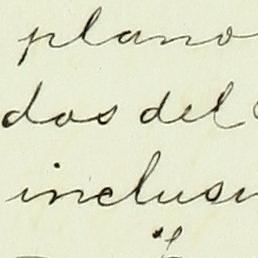 plano
dos del
inclusi